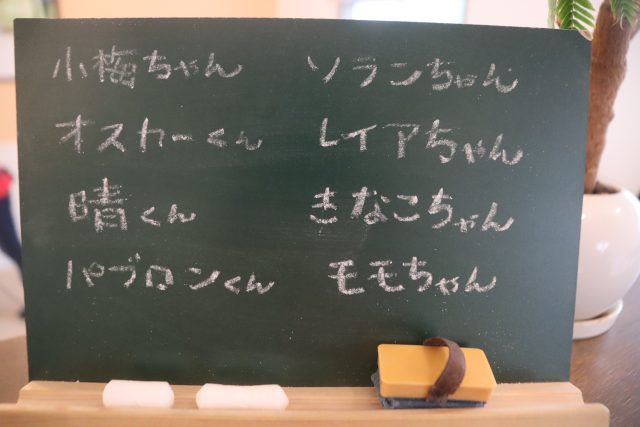 小梅ちゃん ソランちゃん
オスカーくん レイアちゃん
晴くん きなこちゃん
パブロンくん モモちゃん